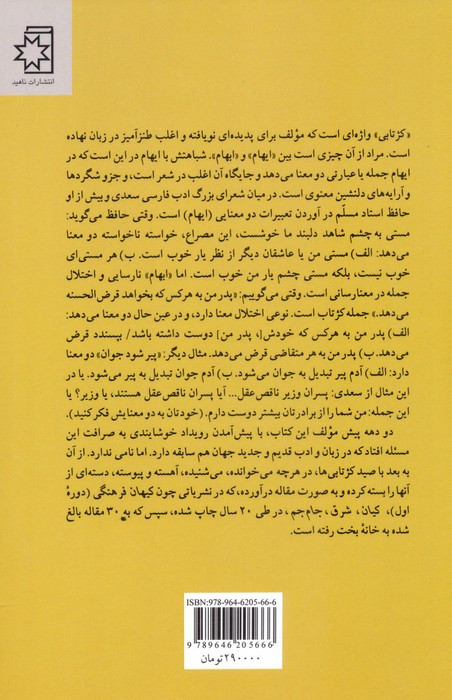 انتشارات ناهید
«کژتابی» واژه‌ای است که مؤلف برای پدیده‌ای نویافته و اغلب طنزآمیز در زبان نهاده
است. مراد از آن چیزی است بین «ایهام» و «ابهام». شباهتش با ایهام در این است که در
ایهام جمله یا عبارتی دو معنا می‌دهد و جایگاه آن اغلب در شعر است، و جزو شگردها
و آرایه‌های دلنشین معنوی است. در میان شعرای بزرگ ادب فارسی سعدی و بیش از او
حافظ استاد مسلّم در آوردن تعبیرات دو معنایی (ایهام) است. وقتی حافظ می‌گوید:
مستی به چشم شاهد دلبند ما خوشست، این مصراع، خواسته ناخواسته دو معنا
می‌دهد: الف) مستی من یا عاشقان دیگر از نظر یار خوب است. ب) هر مستی‌ای
خوب نیست، بلکه مستی چشم یار من خوب است. اما «ابهام» نارسایی و اختلال
جمله در معنارسانی است. وقتی می‌گوییم: «پدر من به هرکس که بخواهد قرض‌الحسنه
می‌دهد.» جمله کژتاب است. نوعی اختلال معنا دارد، و در عین حال دو معنا می‌دهد:
الف) پدر من به هرکس که خودش [، پدر من] دوست داشته باشد/ بپسندد قرض
می‌دهد. ب) پدر من به هر متقاضی قرض می‌دهد. مثال دیگر: «پیر شود جوان» دو معنا
دارد: الف) آدم پیر تبدیل به جوان می‌شود. ب) آدم جوان تبدیل به پیر می‌شود. یا در
این مثال از سعدی: پسران وزیر ناقص‌عقل... آیا پسران ناقص‌عقل هستند، یا وزیر؟ یا
این جمله: من شما را از برادرتان بیشتر دوست دارم. (خودتان به دو معنایش فکر کنید).
دو دهه پیش مؤلف این کتاب، با پیش‌آمدن رویداد خوشایندی به صرافت این
مسئله افتاد که در زبان و ادب قدیم و جدید جهان هم سابقه دارد. اما نامی ندارد. از آن
به بعد با صید کژتابی‌ها، در هرچه می‌خوانده، می‌شنیده، آهسته و پیوسته، دسته‌ای از
آنها را بسته کرده و به صورت مقاله درآورده، که در نشریاتی چون کیهان فرهنگی (دورهٔ
اول)، کیان، شرق، جام‌جم، در طی ۲۰ سال چاپ شده، سپس که به ۳۰ مقاله بالغ
شده به خانهٔ بخت رفته است.
ISBN:978-964-6205-66-6
9 789646 205666
۲۹۰۰۰۰ تومان